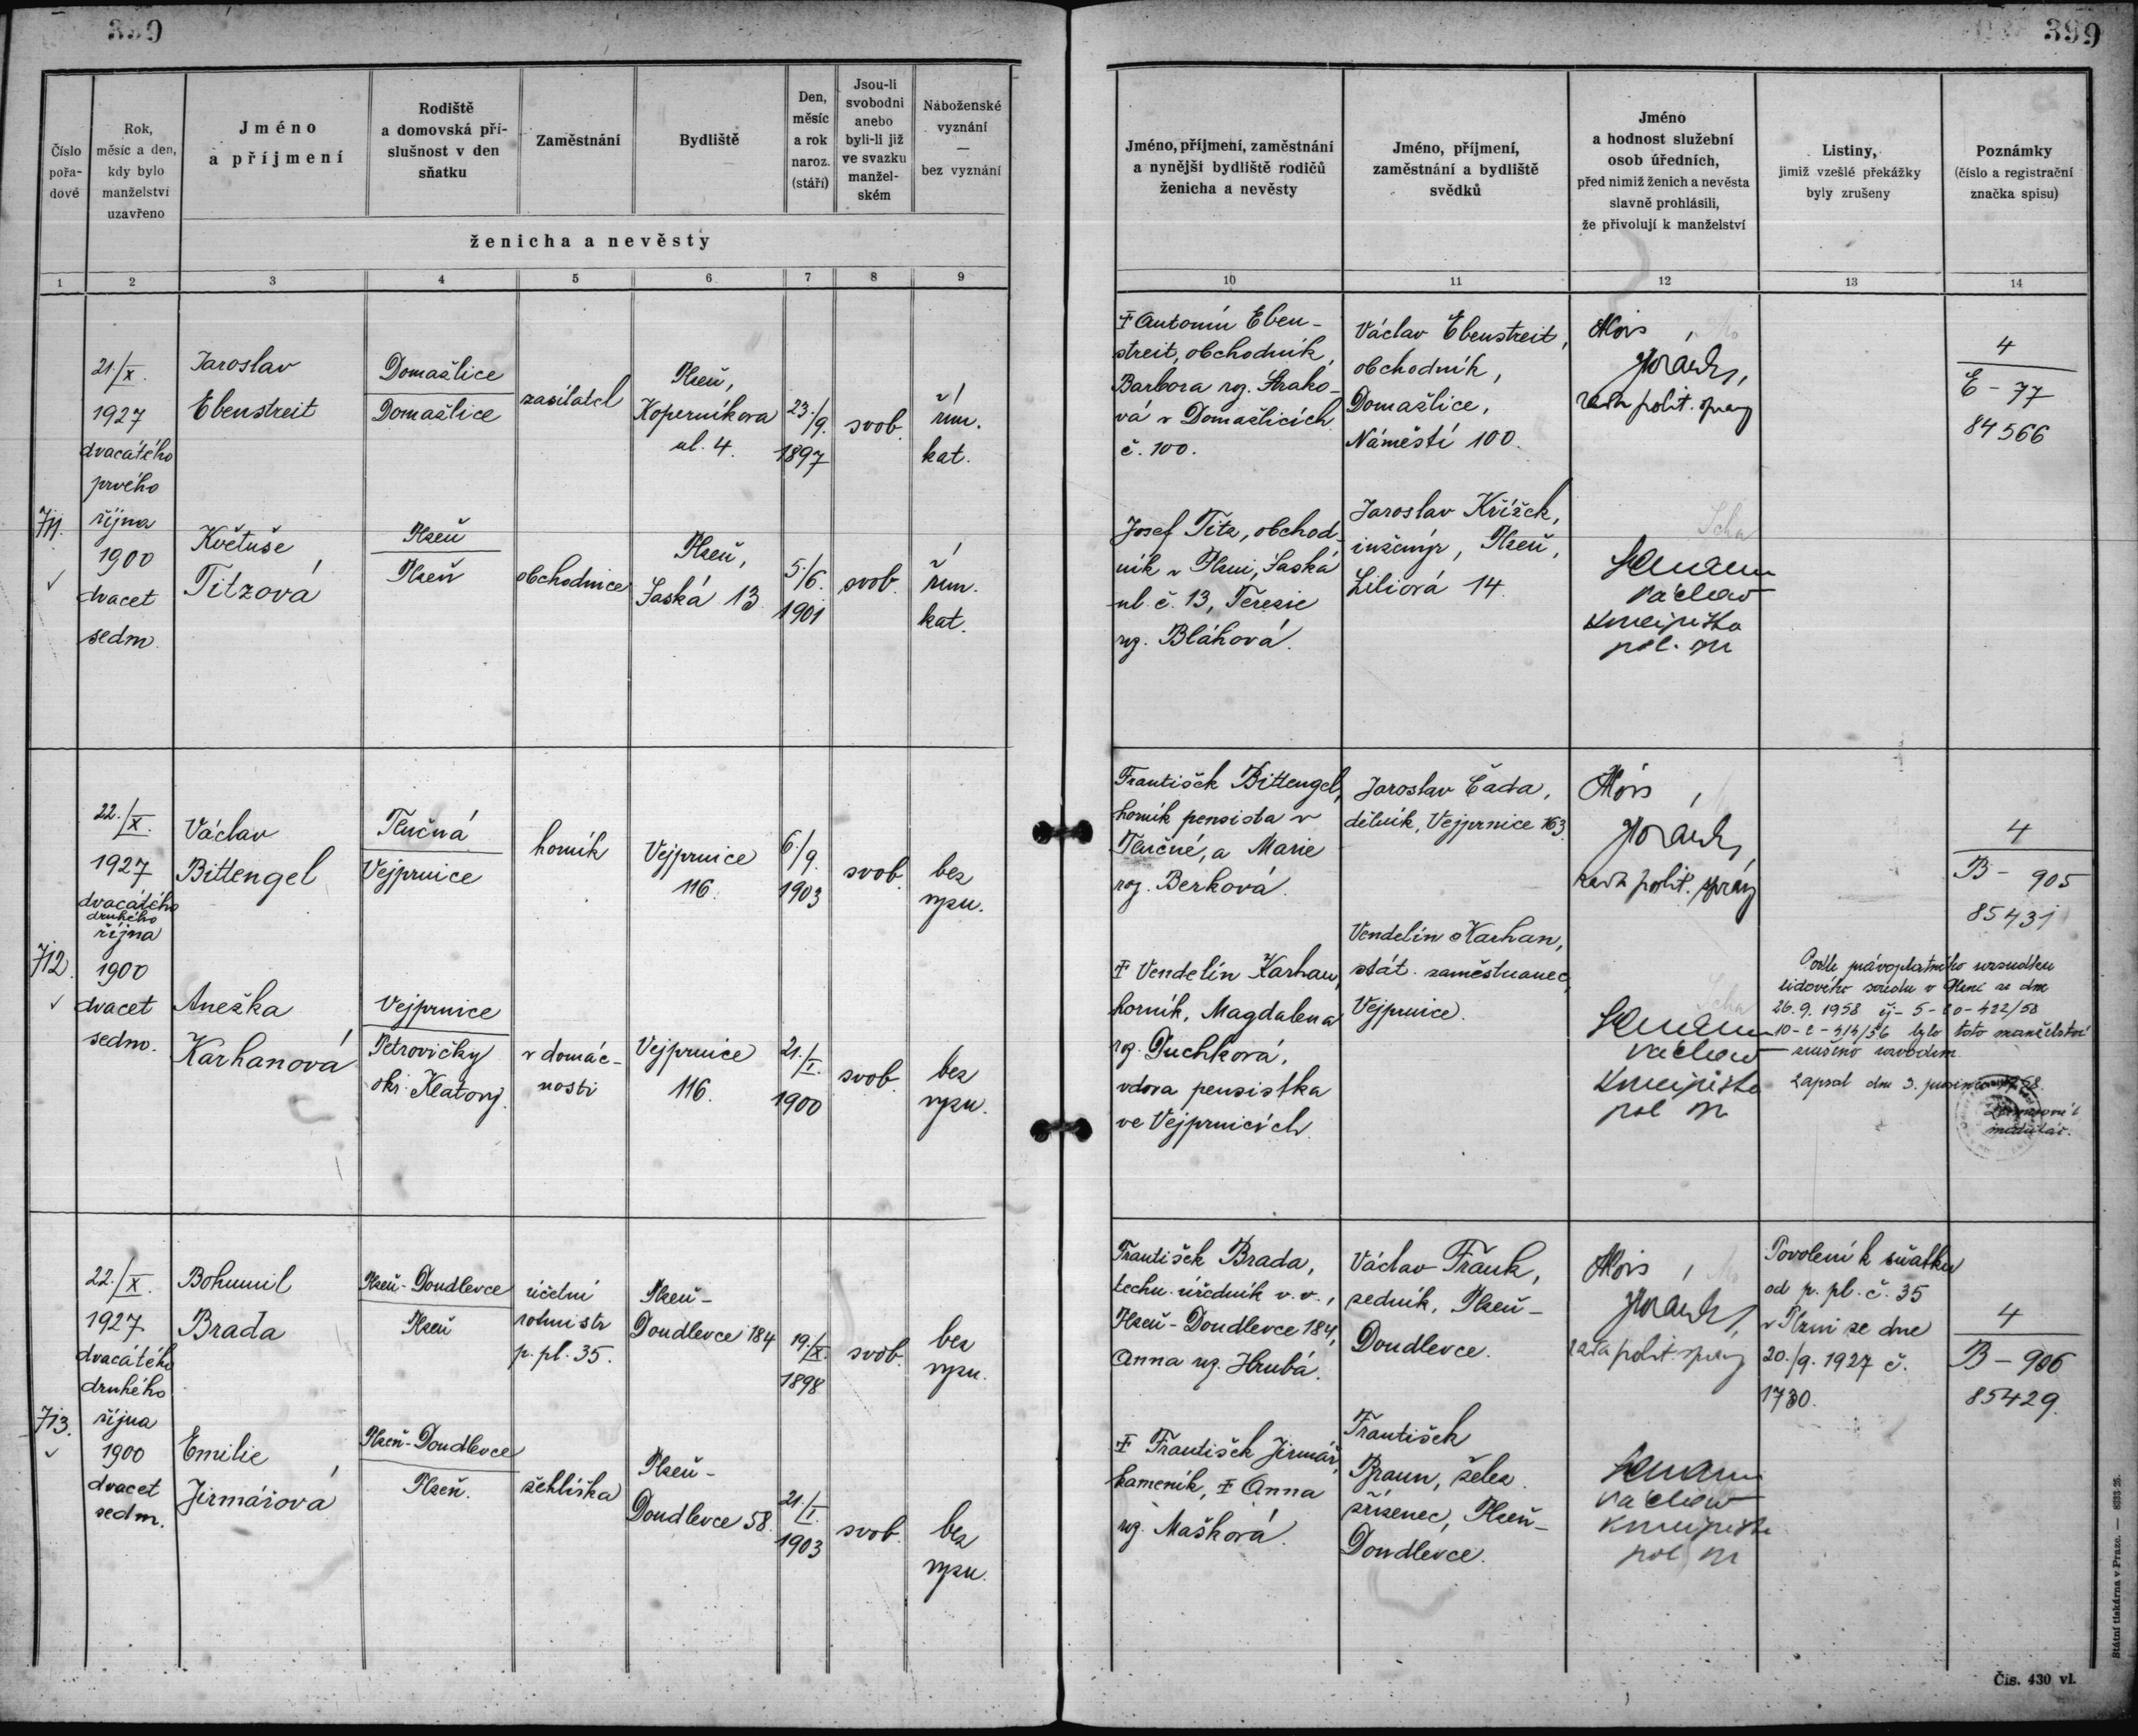 399
Číslo pořa-dové
Rok, měsíc a den, kdy bylo manželství uzavřeno
Jméno a příjmení
Rodiště a domovská pří-slušnost v den sňatku
Zaměstnání
Bydliště
Den, měsíc a rok naroz. (stáří)
Jsou-li svobodni anebo byli-li již ve svazku manžel-ském
Náboženské vyznání — bez vyznání
ženicha a nevěsty
1 2 3 4 5 6 7 8 9
711.
21./X.
1927
dvacátého
prvého
října
1900
dvacet
sedm
Jaroslav
Ebenstreit
Domažlice
Domažlice
zasílatel
Plzeň,
Koperníkova
ul. 4.
23./9.
1897
svob.
řím.
kat.
Květuše
Titzová
Plzeň
Plzeň
obchodnice
Plzeň,
Saská 13
5./6.
1901
svob.
řím.
kat.
712.
22./X.
1927
dvacátého
druhého
října
1900
dvacet
sedm.
Václav
Bittengel
Tlučná
Vejprnice
horník
Vejprnice
116.
6./9.
1903
svob.
bez
vyzn.
Anežka
Karhanová
Vejprnice
Petrovičky
okr. Klatovy.
v domác-
nosti
Vejprnice
116.
21./I.
1900
svob.
bez
vyzn.
713.
22./X.
1927
dvacátého
druhého
října
1900
dvacet
sedm.
Bohumil
Brada
Plzeň-Doudlevce
Plzeň
účetní
rotmistr
p. pl. 35.
Plzeň-
Doudlevce 184
19./X.
1898
svob.
bez
vyzn.
Emilie
Jirmářová
Plzeň-Doudlevce
Plzeň.
žehlířka
Plzeň-
Doudlevce 58.
21./I.
1903
svob.
bez
vyzn.
399
Jméno, příjmení, zaměstnání a nynější bydliště rodičů ženicha a nevěsty
Jméno, příjmení, zaměstnání a bydliště svědků
Jméno a hodnost služební osob úředních, před nimiž ženich a nevěsta slavně prohlásili, že přivolují k manželství
Listiny, jimiž vzešlé překážky byly zrušeny
Poznámky (číslo a registrační značka spisu)
10 11 12 13 14
‡ Antonín Eben-
streit, obchodník,
Barbora roz. Strako-
vá v Domažlicích
č. 100.
Václav Ebenstreit,
obchodník,
Domažlice,
Náměstí 100.
Alois
rada polit. správy
4
E - 77
84566
Josef Titz, obchod-
ník v Plzni, Saská
ul. č. 13, Terezie
roz. Bláhová.
Jaroslav Křížek,
inženýr, Plzeň,
Liliová 14.
Václav
František Bittengel,
horník pensista v
Tlučné, a Marie
roz. Berková.
Jaroslav Čada,
dělník, Vejprnice 163.
Alois
rada polit. správy
4
B - 905
85431
‡ Vendelín Karhan,
horník, Magdalena
roz. Duchková,
vdova pensistka
ve Vejprnicích.
Vendelín Karhan,
stát. zaměstnanec,
Vejprnice.
Václav
Podle právoplatného rozsudku
lidového soudu v Plzni ze dne
26. 9. 1958 čj- 5-Co-422/58
10-C-414/56 bylo toto manželství
zrušeno rozvodem.
Zapsal dne 3. prosince 1958.
matrikář.
František Brada,
techn. úředník v. v.,
Plzeň-Doudlevce 184,
Anna roz. Hrubá.
Václav Fraňk,
zedník, Plzeň-
Doudlevce.
Alois
rada polit. správy
Povolení k sňatku
od p. pl. č. 35
v Plzni ze dne
20./9. 1927 č.
1730.
4
B - 906
85429.
‡ František Jirmář,
kameník, ‡ Anna
roz. Mašková.
František
Braun, želez.
zřízenec, Plzeň-
Doudlevce.
Václav
Státní tiskárna v Praze. — 8133 25.
Čís. 430 vl.